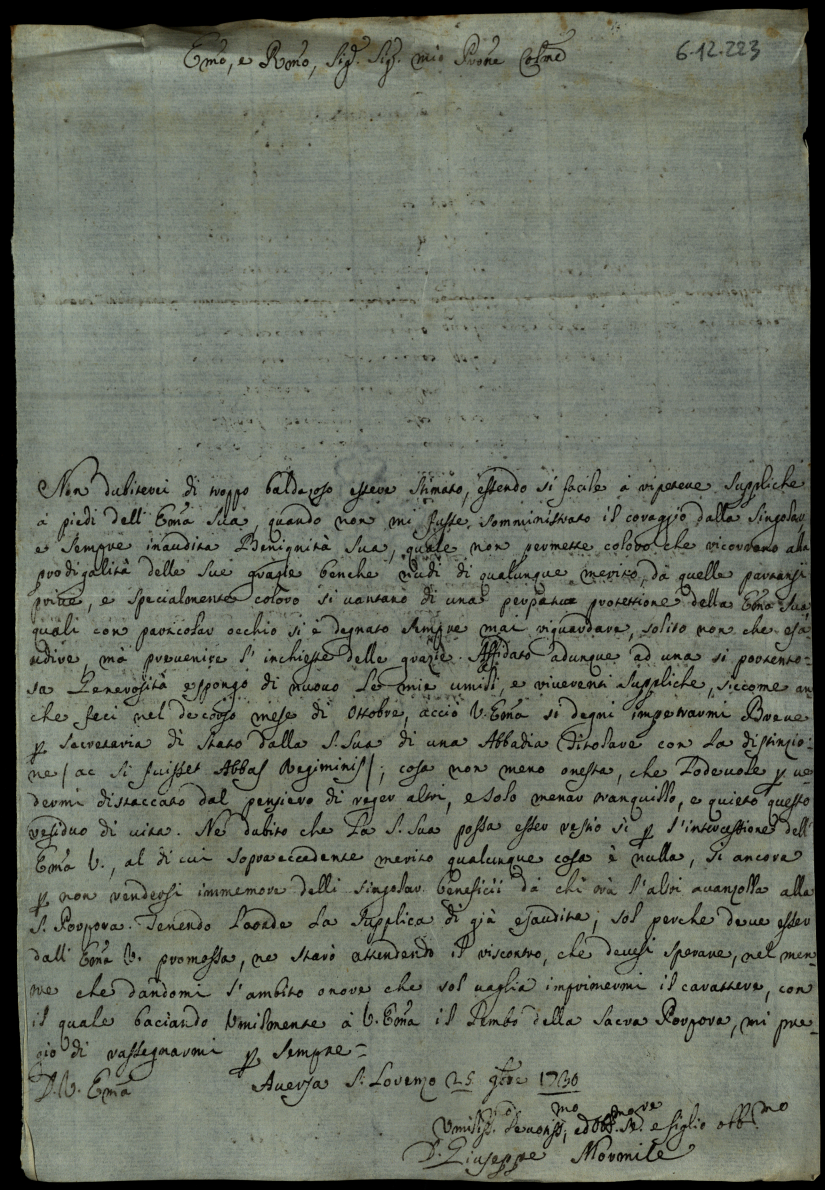 Emo, e Rmo, Sig.r Sig.r mio Prone Colmo
6-12-223
Non dubiterei di troppo baldazoso essere stimato, essendo si facile à ripetere suppliche
à piedi dell'Emã Sua, quando non mi fusse somministrato il coraggio dalla singolar
e sempre inaudita Benignità sua, quale non permette coloro che ricorrono alla
prodigalità delle sue grazie benche nudi di qualunque merito, da quelle partansi
prive, e specialmente coloro si vantano di una perpetua protettione della Emã Sua,
quali con particolar occhio si è degnato sempre mai riguardare, solito non che esa
udire, mà prevenire l'inchieste delle grazie. Affidato adunque ad una si portento=
sa Generosità espongo di nuovo le mie umili, e riverenti suppliche, siccome an
che feci nel decorso mese di Ottobre, acciò V. Emã si degni impetrarmi Breve
p secretaria di Stato dalla S. Sua di una Abbadia titolare con la distinzio=
ne / ac si fuisset Abbas Regiminis /; cosa non meno onesta, che lodevole p ve
dermi distaccato dal pensiero di reger altri, e solo menar tranquillo, e quieto questo
residuo di vita. Ne dubito che la S. Sua possa esser restio si p l'intercessione dell'
Emã V., al di cui sopraeccedente merito qualunque cosa è nulla, si ancora
p non rendersi immemore delli singolar beneficii da chi trà l'altri avanzolla alla
S. Porpora. Tenendo laonde la supplica di già esaudita, sol perche deve esser
dall'Emã V. promossa, ne starò attendendo il riscontro, che devesi sperare, nel men
tre che dandomi l'ambito onore che sol vaglia imprimermi il carattere, con
il quale baciando umilmente à V. Emã il lembo della sacra Porpora, mi pre
gio di rassegnarmi p sempre=
D. V. Emã Aversa S. Lorenzo 25 9bre 1730
Umiliss. devotiss.mo, ed obb. e figlio obb.mo
D. Giuseppe Mormile